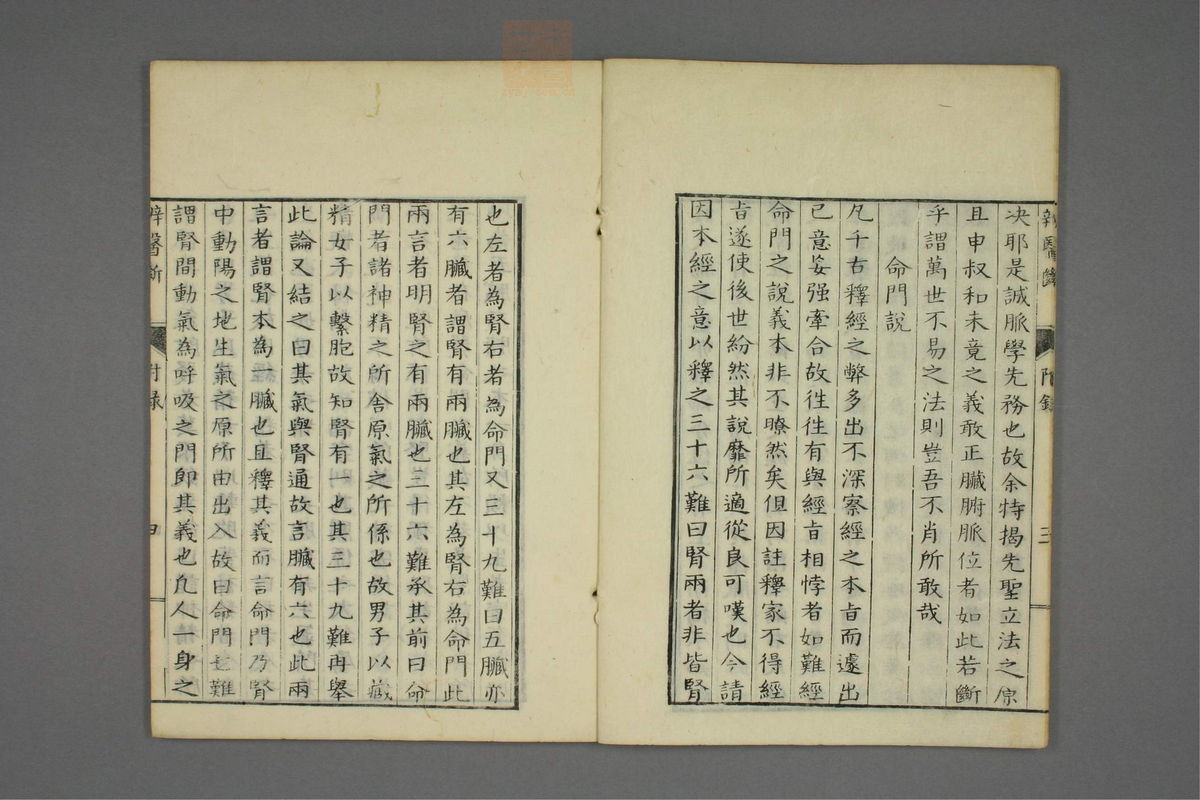 決耶是誠脈學先務也故余特揭先聖立法之原
且申叔和未竟之義敢正臟腑脈位者如此若斷
乎謂萬世不易之法則豈吾不肖所敢哉
命門説
凡千古釋經之弊多出不深察經之本旨而遽出
己意妄强牽合故徃徃有與經旨相悖者如難經
命門之説義本非不瞭然矣但因註釋家不得經
旨遂使後世紛然其説靡所適從良可嘆也今請
因本經之意以釋之三十六難曰腎兩者非皆腎
也左者為腎右者為命門又三十九難曰五臟亦
有六臟者謂腎有兩臟也其左為腎右為命門此
兩言者明腎之有兩臟也三十六難承其前曰命
門者諸神精之所舍原氣之所係也故男子以藏
精女子以繫胞故知腎有一也其三十九難再舉
此論又結之曰其氣與腎通故言臟有六也此兩
言者謂腎本為一臟也且釋其義而言命門乃腎
中動陽之地生氣之原所由出入故曰命門難
謂腎間動氣為呼吸之門即其義也凡人一身之
醫斷
附録
三